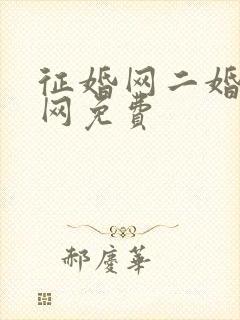 征婚网二婚
网免费
郝庆华